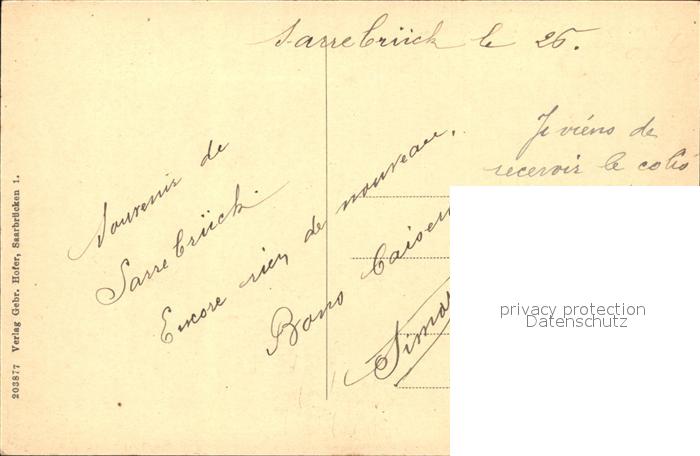 Sarrebrück le 26.
Je viens de
recevoir le colis
Souvenir de
Sarrebrück.
Encore rien de nouveau.
Bons Baisers
Simo
203877 Verlag Gebr. Hofer, Saarbrücken 1.
privacy protection
Datenschutz